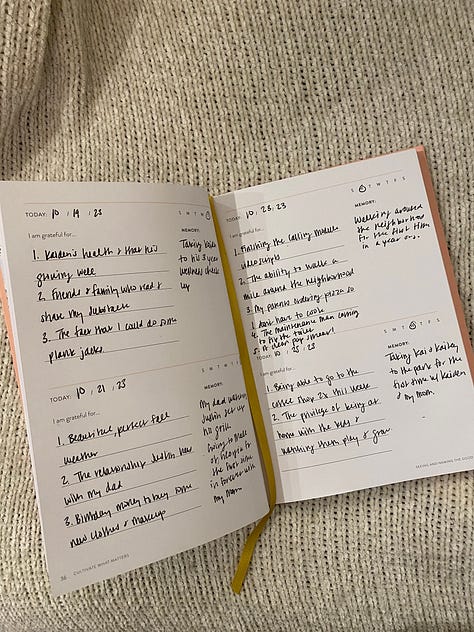 TODAY: 10 / 19 / 23
S M T W T F S
I am grateful for...
1. Kaiden's health & that he's
growing well
2. Friends & family who read &
share my Substack
3. The fact that I could do some
plank jacks
MEMORY:
Taking
to his 3 year
wellness check
up
TODAY: 10 / 21 / 23
I am grateful for...
1. Beautiful, perfect fall
weather
2. The relationship Justin has
with my dad
3. Birthday money to buy some
new clothes & makeup
MEMORY:
My dad
Justin set up
his grill
Going to Mall
of
for the first time
in forever with
my mom
36 CULTIVATE WHAT MATTERS
TODAY: 10 / 23 / 23
S M T W T F S
I am grateful for...
1. Finishing the
video scripts
2. The ability to walk a
mile around the neighborhood
3. My parents ordering pizza so
I don't have to cook
4. The maintenance man coming
to fix the toilet
5. A clear
MEMORY:
Walking around
the neighborhood
for the first time
in a year
TODAY: 10 / 25 / 23
S M T W T F S
I am grateful for...
1. Being able to go to the
coffee shop 2x this week
2. The privilege of being at
home with the kids &
watching them play & grow
MEMORY:
Taking Kai & Kaiden
to the park for the
first time w/ Kaiden
& my mom
SEEING AND NAMING THE GOOD